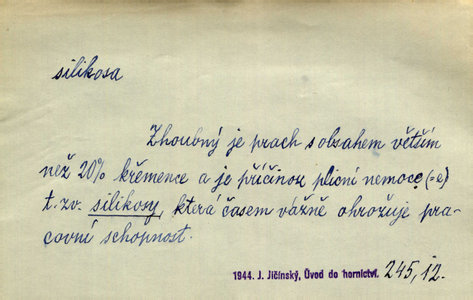 silikosa
Zhoubný je prach s obsahem větším
než 20% křemence a je příčinou plicní nemoce (=e)
t. zv. silikosy, která časem vážně ohrožuje pra-
covní schopnost.
1944. J. Jičínský, Úvod do hornictví. 245, 12.